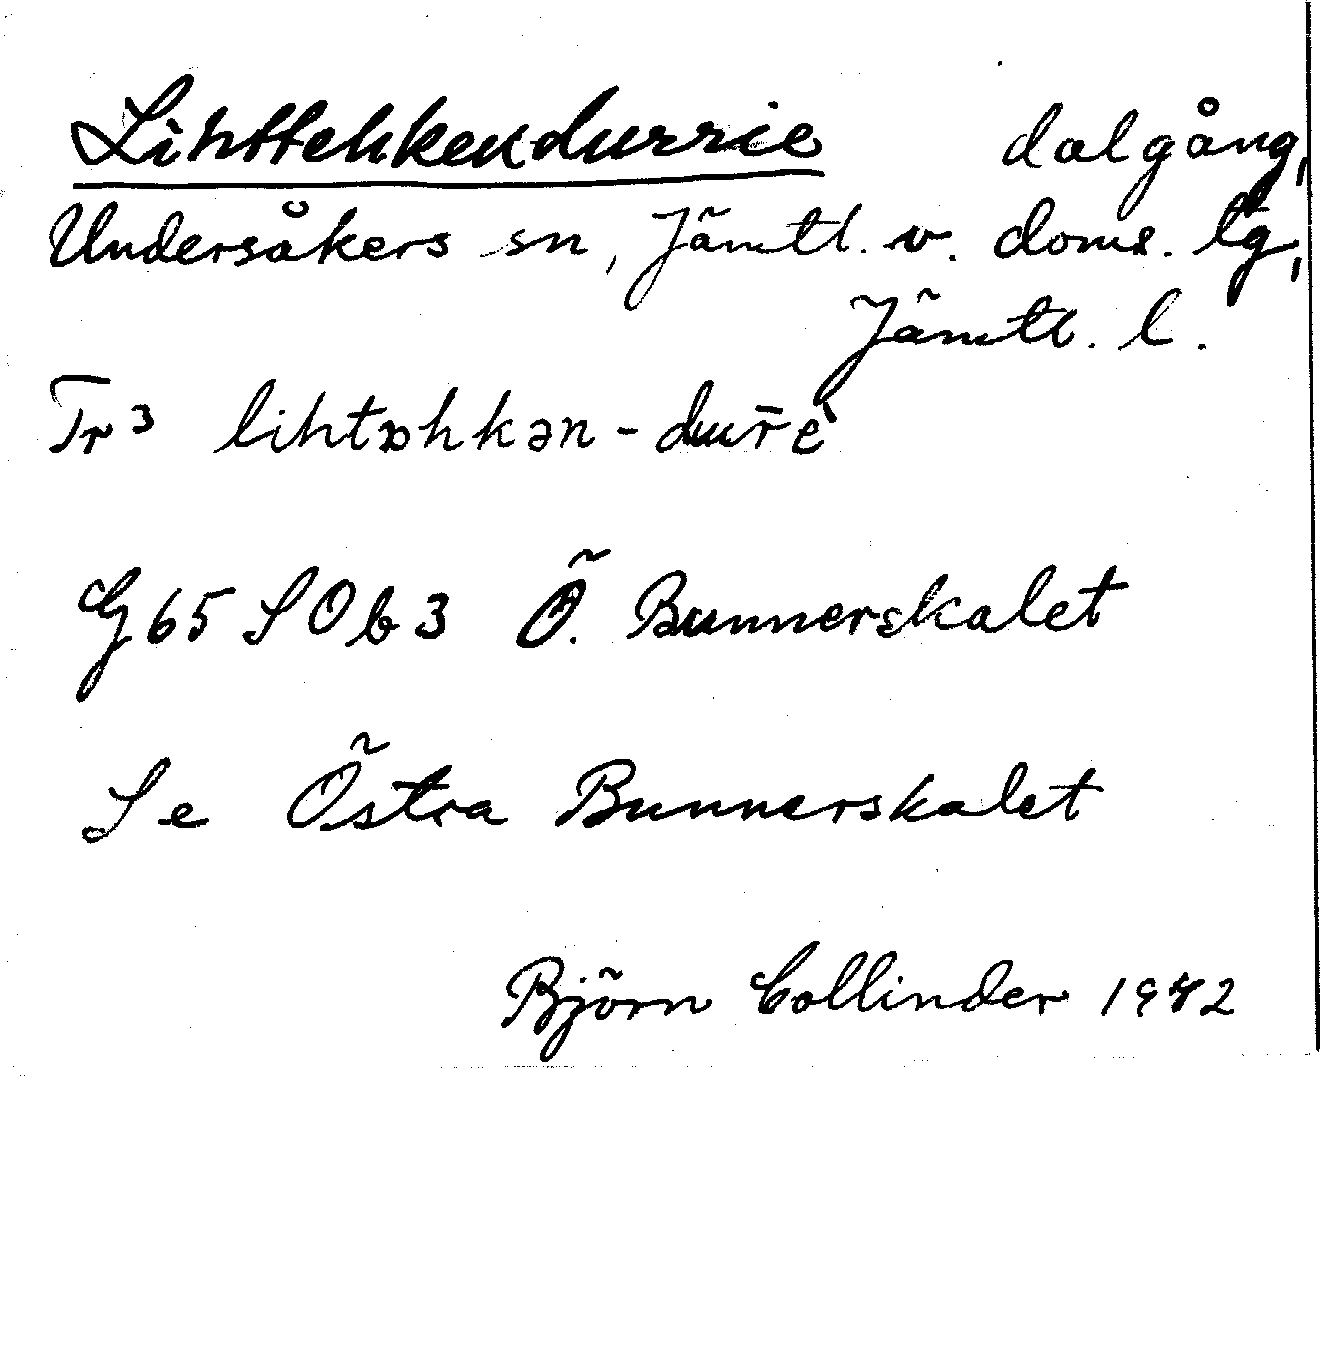 Lihttehkendurrie dalgång,
Undersåkers sn, Jämtl. v. doms. lg,
Jämtl. l.
Tr³ lihtɒhkən-dur̄è
G65 SO b 3 Ö. Bunnerskalet
Se Östra Bunnerskalet
Björn Collinder 1942